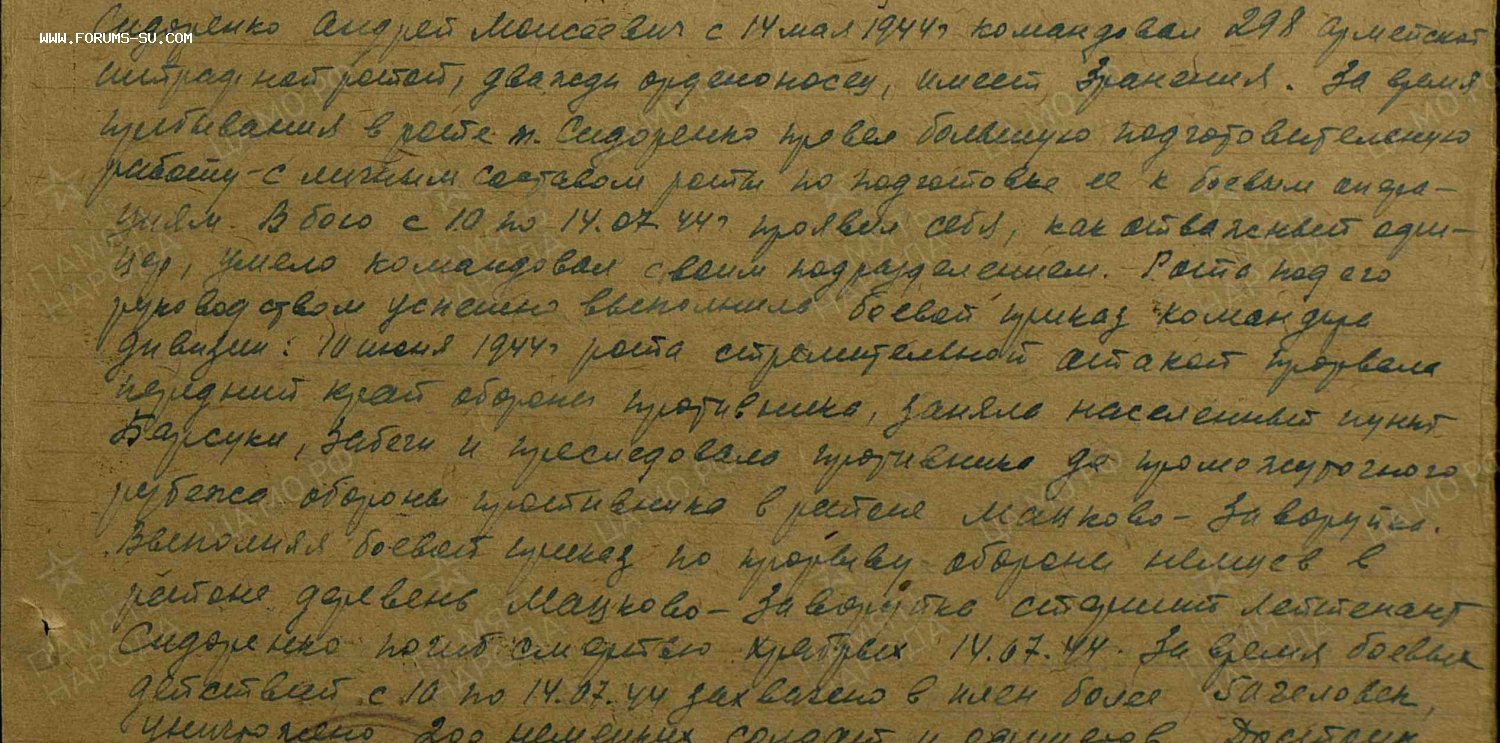 Сидоренко Андрей Моисеевич с 14 мая 1944г командовал 298 армейской
WWW.FORUMS-SU.COM
штрафной ротой, дважды орденоносец, имеет 3 ранения. За время
пребывания в роте т. Сидоренко провел большую подготовительную
работу с личным составом роты по подготовке ее к боевым опера-
циям. В бою с 10 по 14.07.44г проявил себя, как отважный офи-
цер, умело командовал своим подразделением. Рота под его
руководством успешно выполнила боевой приказ командира
дивизии: 10 июня 1944г рота стремительной атакой прорвала
передний край обороны противника, заняла населенный пункт
Барсуки, Забеги и преследовала противника до промежуточного
рубежа обороны противника в районе Мацково-Заворуйка.
Выполняя боевой приказ по прорыву обороны немцев в
районе деревень Мацково-Заворуйка старший лейтенант
Сидоренко погиб смертью храбрых 14.07.44. За время боевых
действий с 10 по 14.07.44 захвачено в плен более 50 человек,
уничтожено 200 немецких солдат и офицеров. Достоин